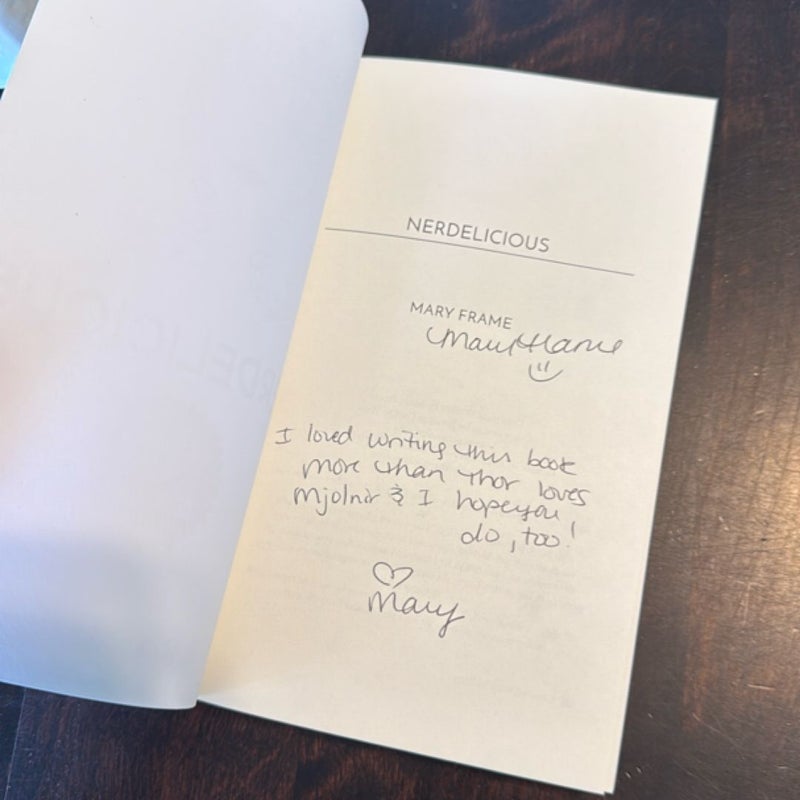 NERDELICIOUS
MARY FRAME
Mary Frame
I loved writing this book
more than Thor loves
Mjolnir & I hope you
do, too!
Mary